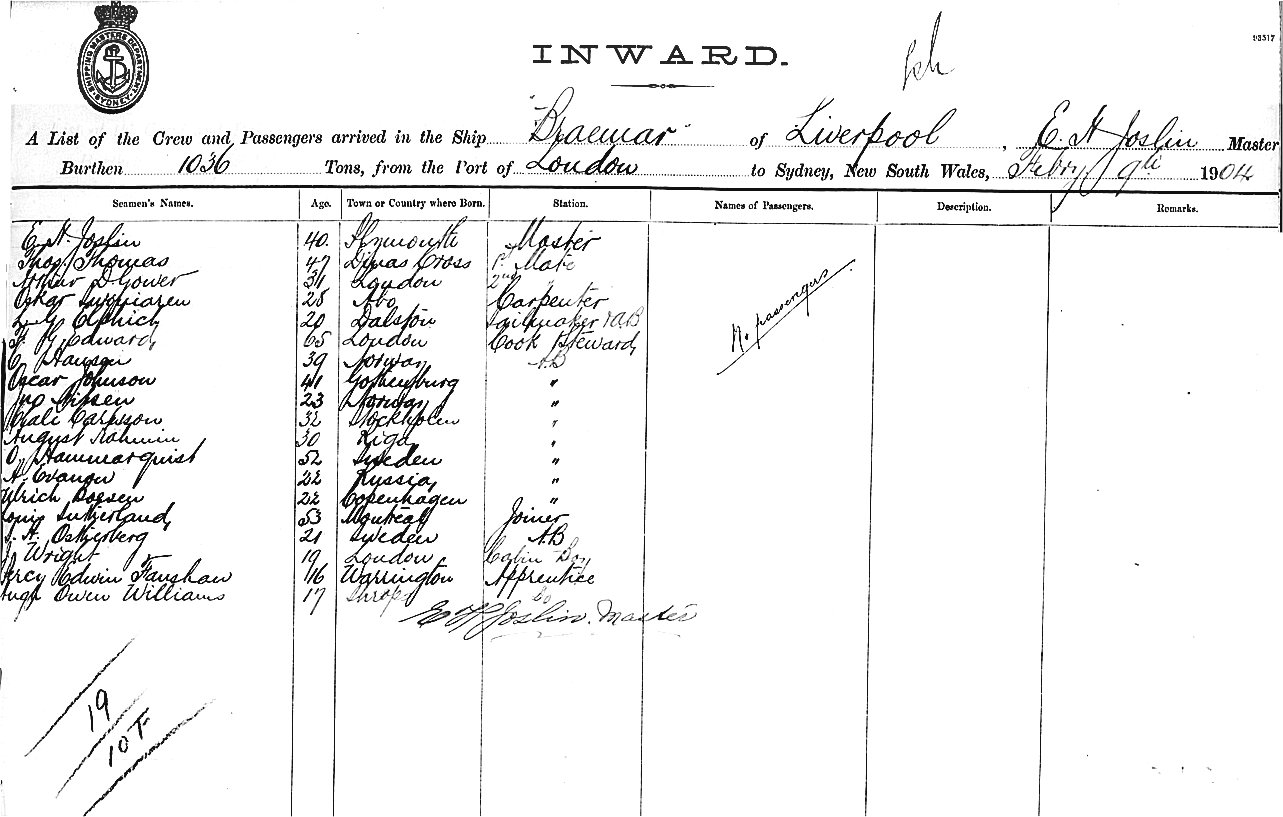 SHIPPING MASTERS DEPARTMENT SYDNEY
93517
INWARD.
A List of the Crew and Passengers arrived in the Ship "Braemar" of Liverpool, E. H. Joslin Master
Burthen 1036 Tons, from the Port of London to Sydney, New South Wales, Febry 9th 1904
Seamen's Names. Age. Town or Country where Born. Station. Names of Passengers. Description. Remarks.
E. H. Joslin 40. Plymouth Master
Thos. Thomas 47 Dinas Cross 1st Mate
Arthur D Gower 31 London 2nd "
Oskar 28 Abo Carpenter
20 Dalston Sailmaker & AB
Edward 65 London Cook & Steward
C. Hansen 39 Norway AB
Oscar Johnson 41 Gothenburg "
Nissen 23 Norway "
Carlsson 32 Stockholm "
August 30 Riga "
O. Hammarquist 52 Sweden "
A. 22 Russia "
Ulrich Boesen 22 Copenhagen "
Sutherland 53 Montreal Joiner
Ostherberg 21 Sweden AB
J. Wright 19 London Cabin Boy
Percy Edwin Fanshaw 16 Warrington Apprentice
Hugh Owen Williams 17 Shrops Do
No passengers
E H Joslin. Master
19
10 T